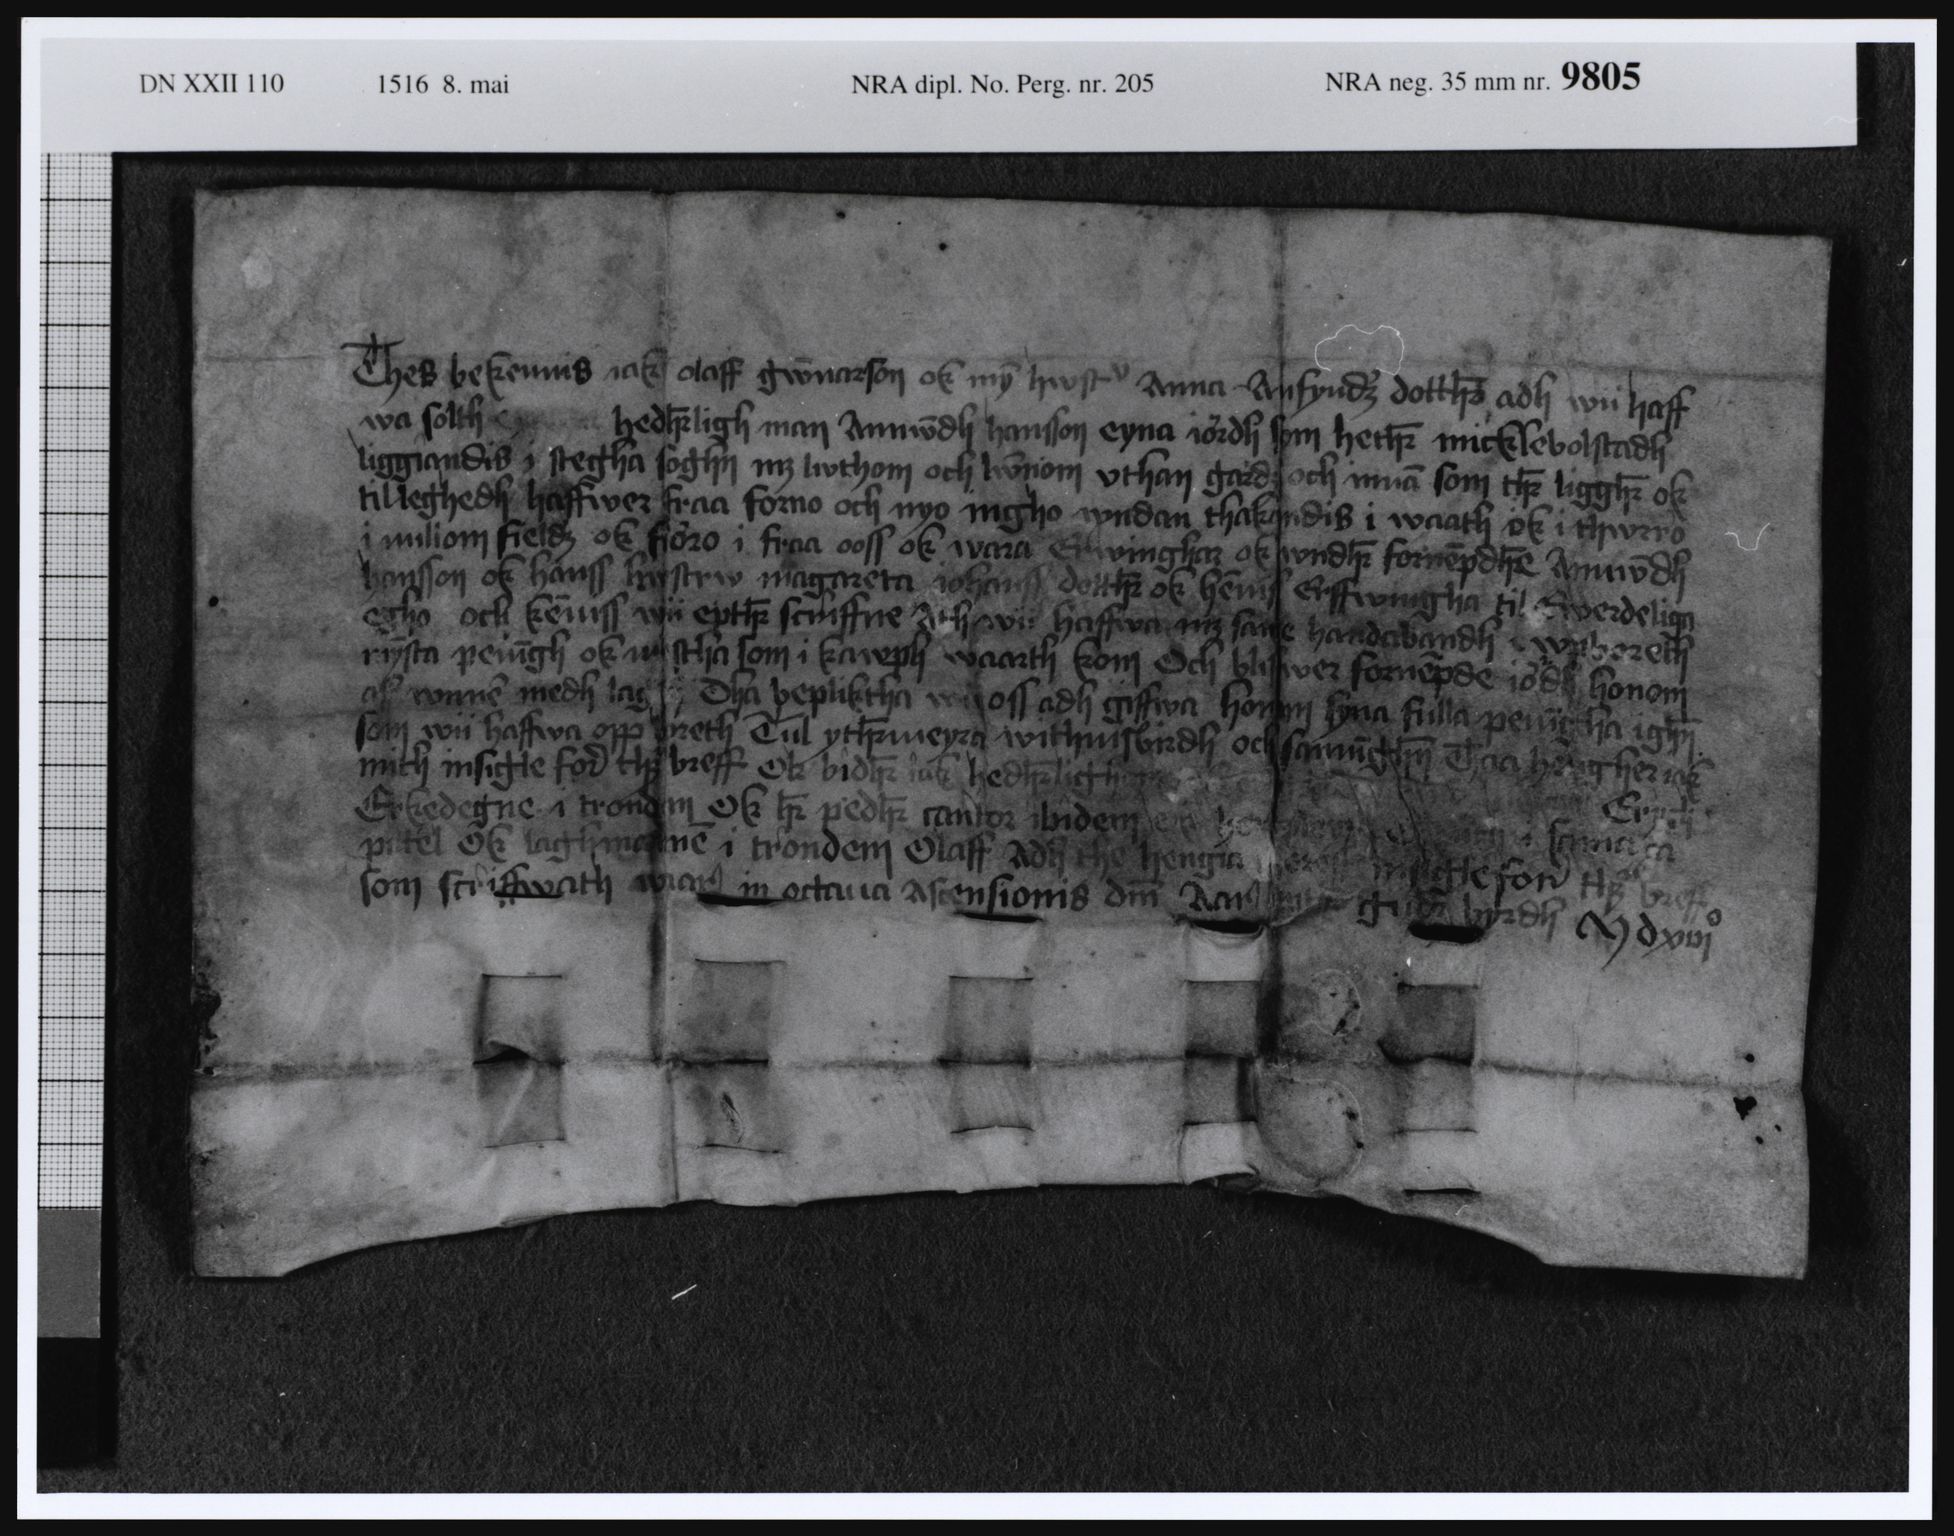 DN XXII 110 1516 8. mai NRA dipl. No. Perg. nr. 205 NRA neg. 35 mm nr. 9805
Thes bekennis iak olaff gwnarson ok my̅ hwstv Anna Anfyndz dotth̅r adh wii haff
wa solth hedh̅rligh man Amwdh hansson eyna iördh som heth̅r micklebolstadh
liggiandis i stegha soghn mz lwthom och lwniom vthan gardz och innā som th̅r liggh̅r ok
tilleghedh haffwer fraa forno och nyo ingho wndan thakandis i waath ok i thwrro
i nuliom fieldz ok fiöro i fraa ooss ok wara Erwinghaz ok wndh̅r fornēpdh̅e Amwdh
hansson ok hanss hwstrw magareta iohanss dotth̅r ok hēnis Erffwingha til Ewerdeliga
egho och kēniss wii epth̅r scriffne Ath wii haffwa mz saṅe handabandh wpboreth
rysta peni̅gh ok mestha som i kawph waarth kom Och bliffwer fornēpde iördh honom
aff wnnē medh lagh Tha bepliktha wii oss adh giffwa honom syna fulla peni̅gha igh̅n
som wii haffwa opp breth Tiil yth̅rmeyra withnisbirdh och sanni̅gh̅n Thaa hēngher iak
mith insigle for th̅z breff Ok bidh̅r iak hedh̅rligh
Erkedegne i trondem Ok h̅r pedh̅r cantor ibidem
pitel Ok laghmanne i trondem Olaff Adh the hengia insigle for th̅z breff
som scriffwath waar in octaua Ascensionis dn̅i Aar gudz byrdh Mdxvi°